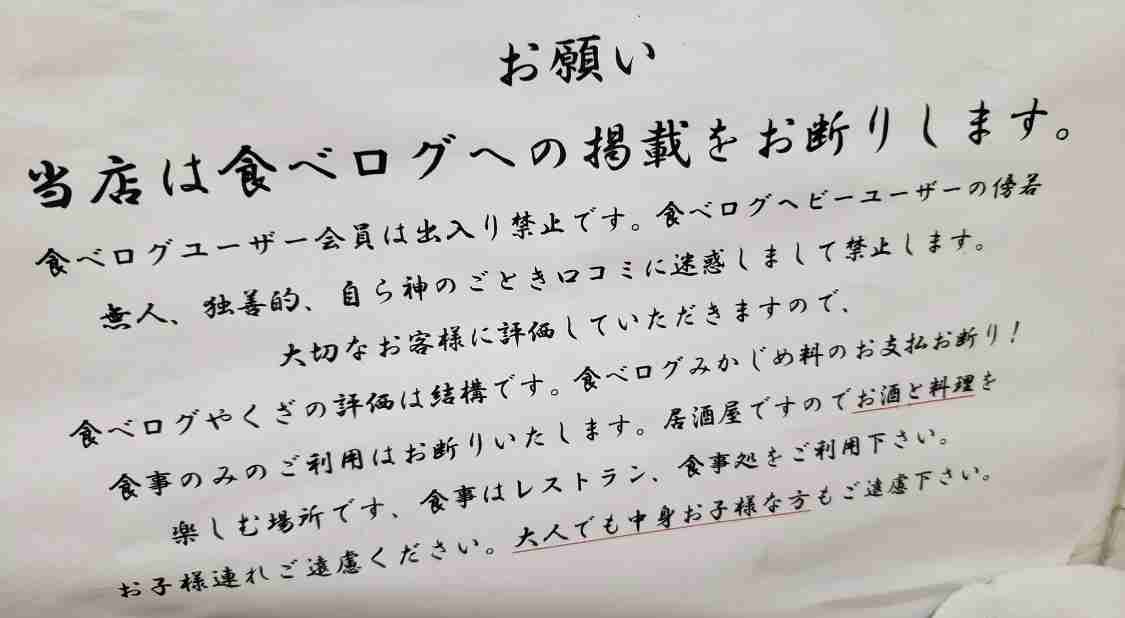 お願い
当店は食べログへの掲載をお断りします。
食べログユーザー会員は出入り禁止です。食べログヘビーユーザーの傍若
無人、独善的、自ら神のごとき口コミに迷惑しまして禁止します。
大切なお客様に評価していただきますので、
食べログやくざの評価は結構です。食べログみかじめ料のお支払お断り！
食事のみのご利用はお断りいたします。居酒屋ですのでお酒と料理を
楽しむ場所です、食事はレストラン、食事処をご利用下さい。
お子様連れご遠慮ください。大人でも中身お子様な方もご遠慮下さい。